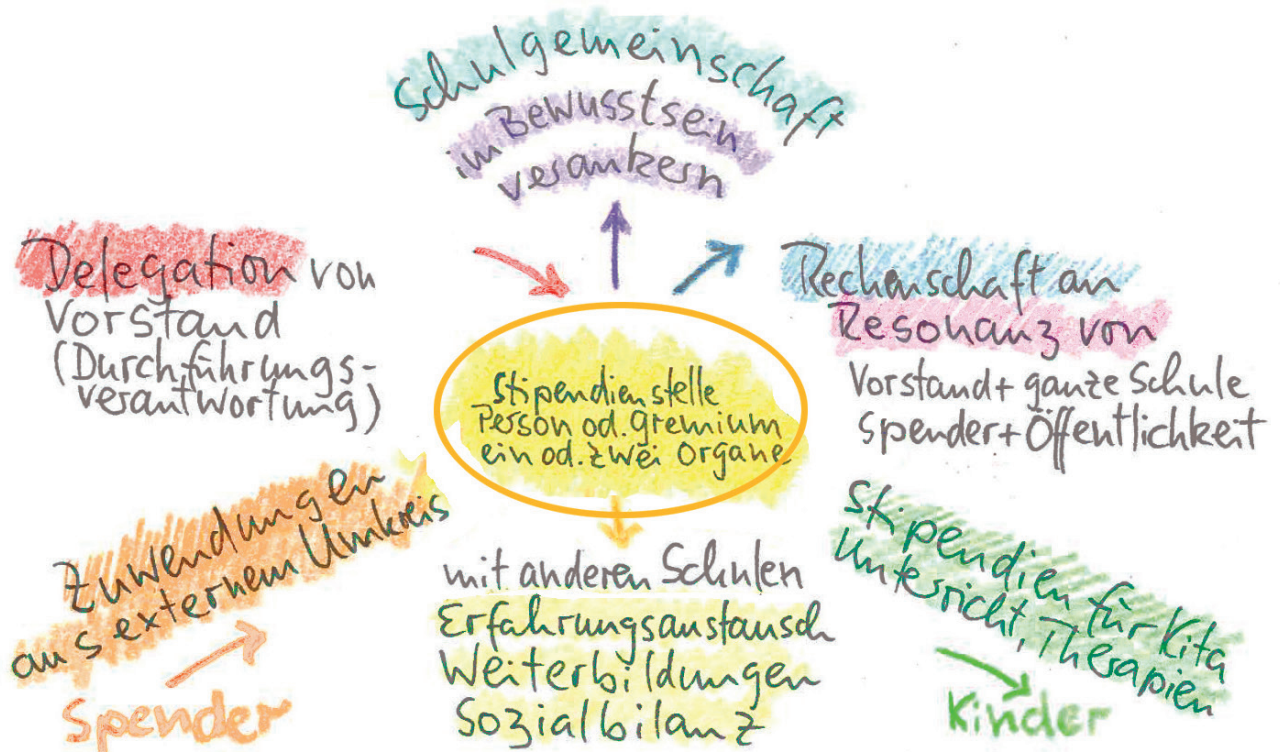 Schulgemeinschaft
im Bewusstsein
verankern
Delegation von
Vorstand
(Durchführungs-
verantwortung)
Rechenschaft an
Resonanz von
Vorstand + ganze Schule
Spender + Öffentlichkeit
Stipendienstelle
Person od. Gremium
ein od. zwei Organe
Zuwendungen
aus externem Umkreis
Spender
mit anderen Schulen
Erfahrungsaustausch
Weiterbildungen
Sozialbilanz
Stipendien für Kita
Unterricht, Therapien
Kinder